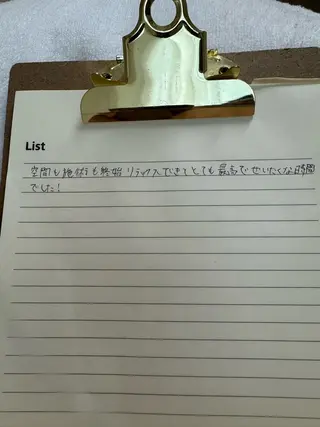 List
空間も施術も終始リラックスできてとても最高でぜいたくな時間
でした!